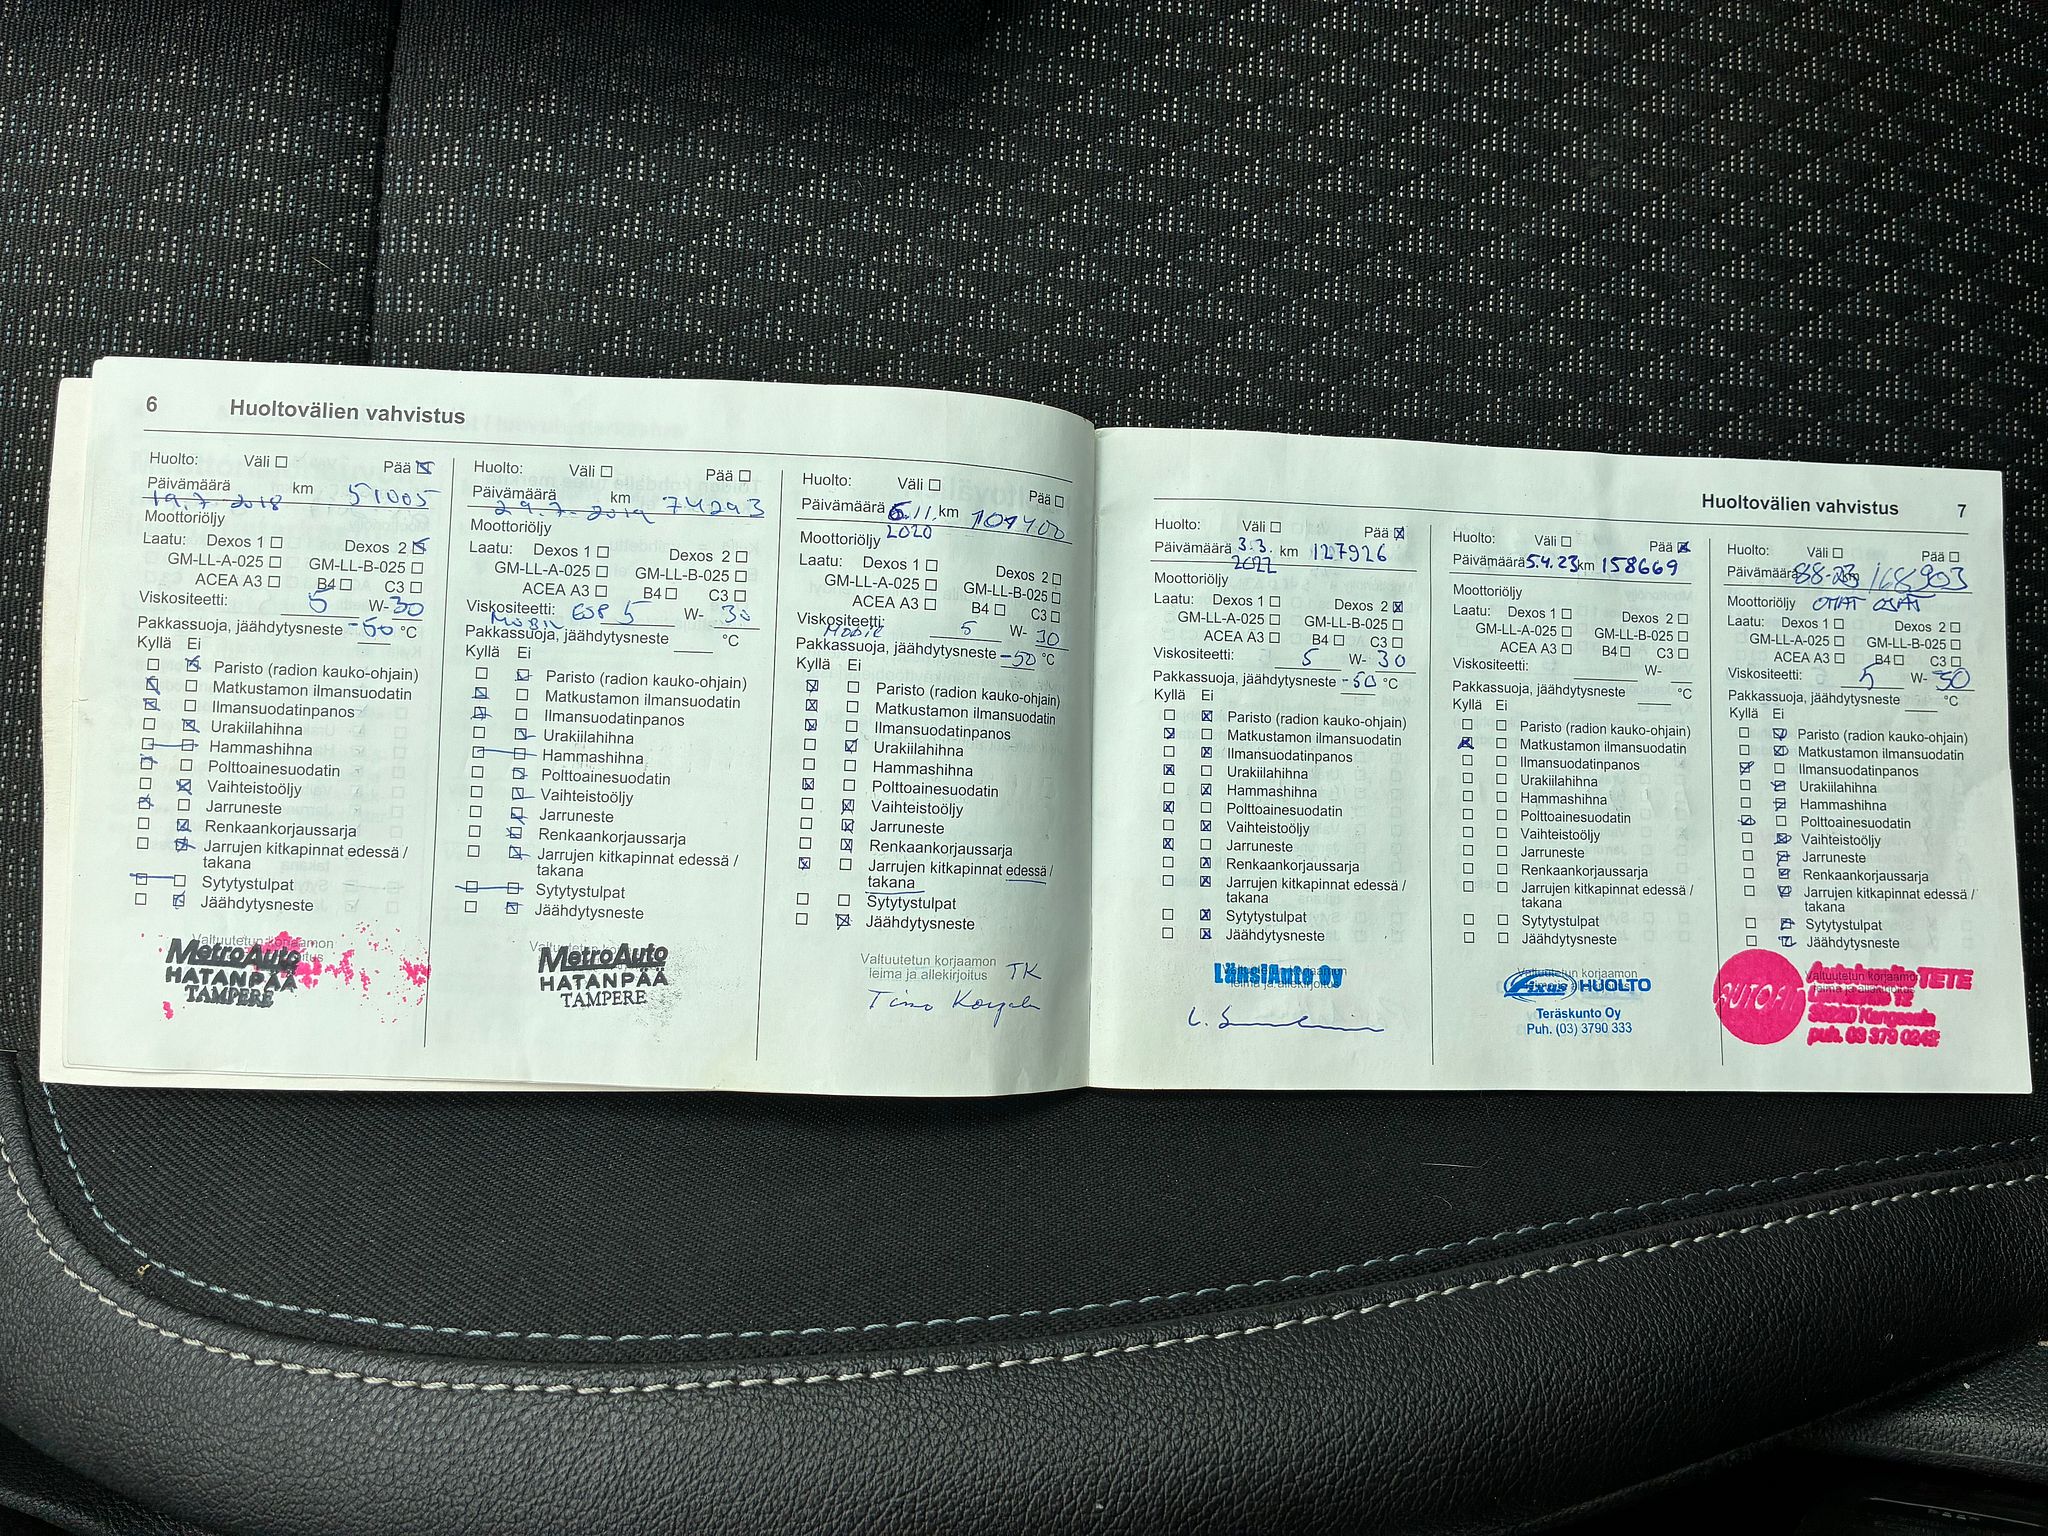 6 Huoltovälien vahvistus
Huolto: Väli Pää
Päivämäärä km
19.7.2018 51005
Moottoriöljy
Laatu: Dexos 1 Dexos 2
GM-LL-A-025 GM-LL-B-025
ACEA A3 B4 C3
Viskositeetti: 5 W-30
Pakkassuoja, jäähdytysneste -50 °C
Kyllä Ei
Paristo (radion kauko-ohjain)
Matkustamon ilmansuodatin
Ilmansuodatinpanos
Urakiilahihna
Hammashihna
Polttoainesuodatin
Vaihteistoöljy
Jarruneste
Renkaankorjaussarja
Jarrujen kitkapinnat edessä /
takana
Sytytystulpat
Jäähdytysneste
Valtuutetun korjaamon
MetroAuto
HATANPÄÄ
TAMPERE
Huolto: Väli Pää
Päivämäärä km
29.7.2019 74293
Moottoriöljy
Laatu: Dexos 1 Dexos 2
GM-LL-A-025 GM-LL-B-025
ACEA A3 B4 C3
Viskositeetti: ESP 5 W- 30
MOBIL
Pakkassuoja, jäähdytysneste °C
Kyllä Ei
Paristo (radion kauko-ohjain)
Matkustamon ilmansuodatin
Ilmansuodatinpanos
Urakiilahihna
Hammashihna
Polttoainesuodatin
Vaihteistoöljy
Jarruneste
Renkaankorjaussarja
Jarrujen kitkapinnat edessä /
takana
Sytytystulpat
Jäähdytysneste
MetroAuto
HATANPÄÄ
TAMPERE
Huolto: Väli Pää
Päivämäärä 6.11. km 101400
2020
Moottoriöljy
Laatu: Dexos 1 Dexos 2
GM-LL-A-025 GM-LL-B-025
ACEA A3 B4 C3
Viskositeetti: 5 W- 30
MOBIL
Pakkassuoja, jäähdytysneste -50 °C
Kyllä Ei
Paristo (radion kauko-ohjain)
Matkustamon ilmansuodatin
Ilmansuodatinpanos
Urakiilahihna
Hammashihna
Polttoainesuodatin
Vaihteistoöljy
Jarruneste
Renkaankorjaussarja
Jarrujen kitkapinnat edessä /
takana
Sytytystulpat
Jäähdytysneste
Valtuutetun korjaamon
leima ja allekirjoitus TK
Timo
Huoltovälien vahvistus 7
Huolto: Väli Pää
Päivämäärä 3.3. km 127926
2022
Moottoriöljy
Laatu: Dexos 1 Dexos 2
GM-LL-A-025 GM-LL-B-025
ACEA A3 B4 C3
Viskositeetti: 5 W- 30
Pakkassuoja, jäähdytysneste -50 °C
Kyllä Ei
Paristo (radion kauko-ohjain)
Matkustamon ilmansuodatin
Ilmansuodatinpanos
Urakiilahihna
Hammashihna
Polttoainesuodatin
Vaihteistoöljy
Jarruneste
Renkaankorjaussarja
Jarrujen kitkapinnat edessä /
takana
Sytytystulpat
Jäähdytysneste
LänsiAuto Oy
Huolto: Väli Pää
Päivämäärä 5.4.23 km 158669
Moottoriöljy
Laatu: Dexos 1 Dexos 2
GM-LL-A-025 GM-LL-B-025
ACEA A3 B4 C3
Viskositeetti: W-
Pakkassuoja, jäähdytysneste °C
Kyllä Ei
Paristo (radion kauko-ohjain)
Matkustamon ilmansuodatin
Ilmansuodatinpanos
Urakiilahihna
Hammashihna
Polttoainesuodatin
Vaihteistoöljy
Jarruneste
Renkaankorjaussarja
Jarrujen kitkapinnat edessä /
takana
Sytytystulpat
Jäähdytysneste
Fixus HUOLTO
Teräskunto Oy
Puh. (03) 3790 333
Huolto: Väli Pää
Päivämäärä 8.8-23 km 168903
Moottoriöljy OMAT OSAT
Laatu: Dexos 1 Dexos 2
GM-LL-A-025 GM-LL-B-025
ACEA A3 B4 C3
Viskositeetti: 5 W- 30
Pakkassuoja, jäähdytysneste °C
Kyllä Ei
Paristo (radion kauko-ohjain)
Matkustamon ilmansuodatin
Ilmansuodatinpanos
Urakiilahihna
Hammashihna
Polttoainesuodatin
Vaihteistoöljy
Jarruneste
Renkaankorjaussarja
Jarrujen kitkapinnat edessä /
takana
Sytytystulpat
Jäähdytysneste
AUTOFIT
TETE
Kangasala
puh. 03 379 0249